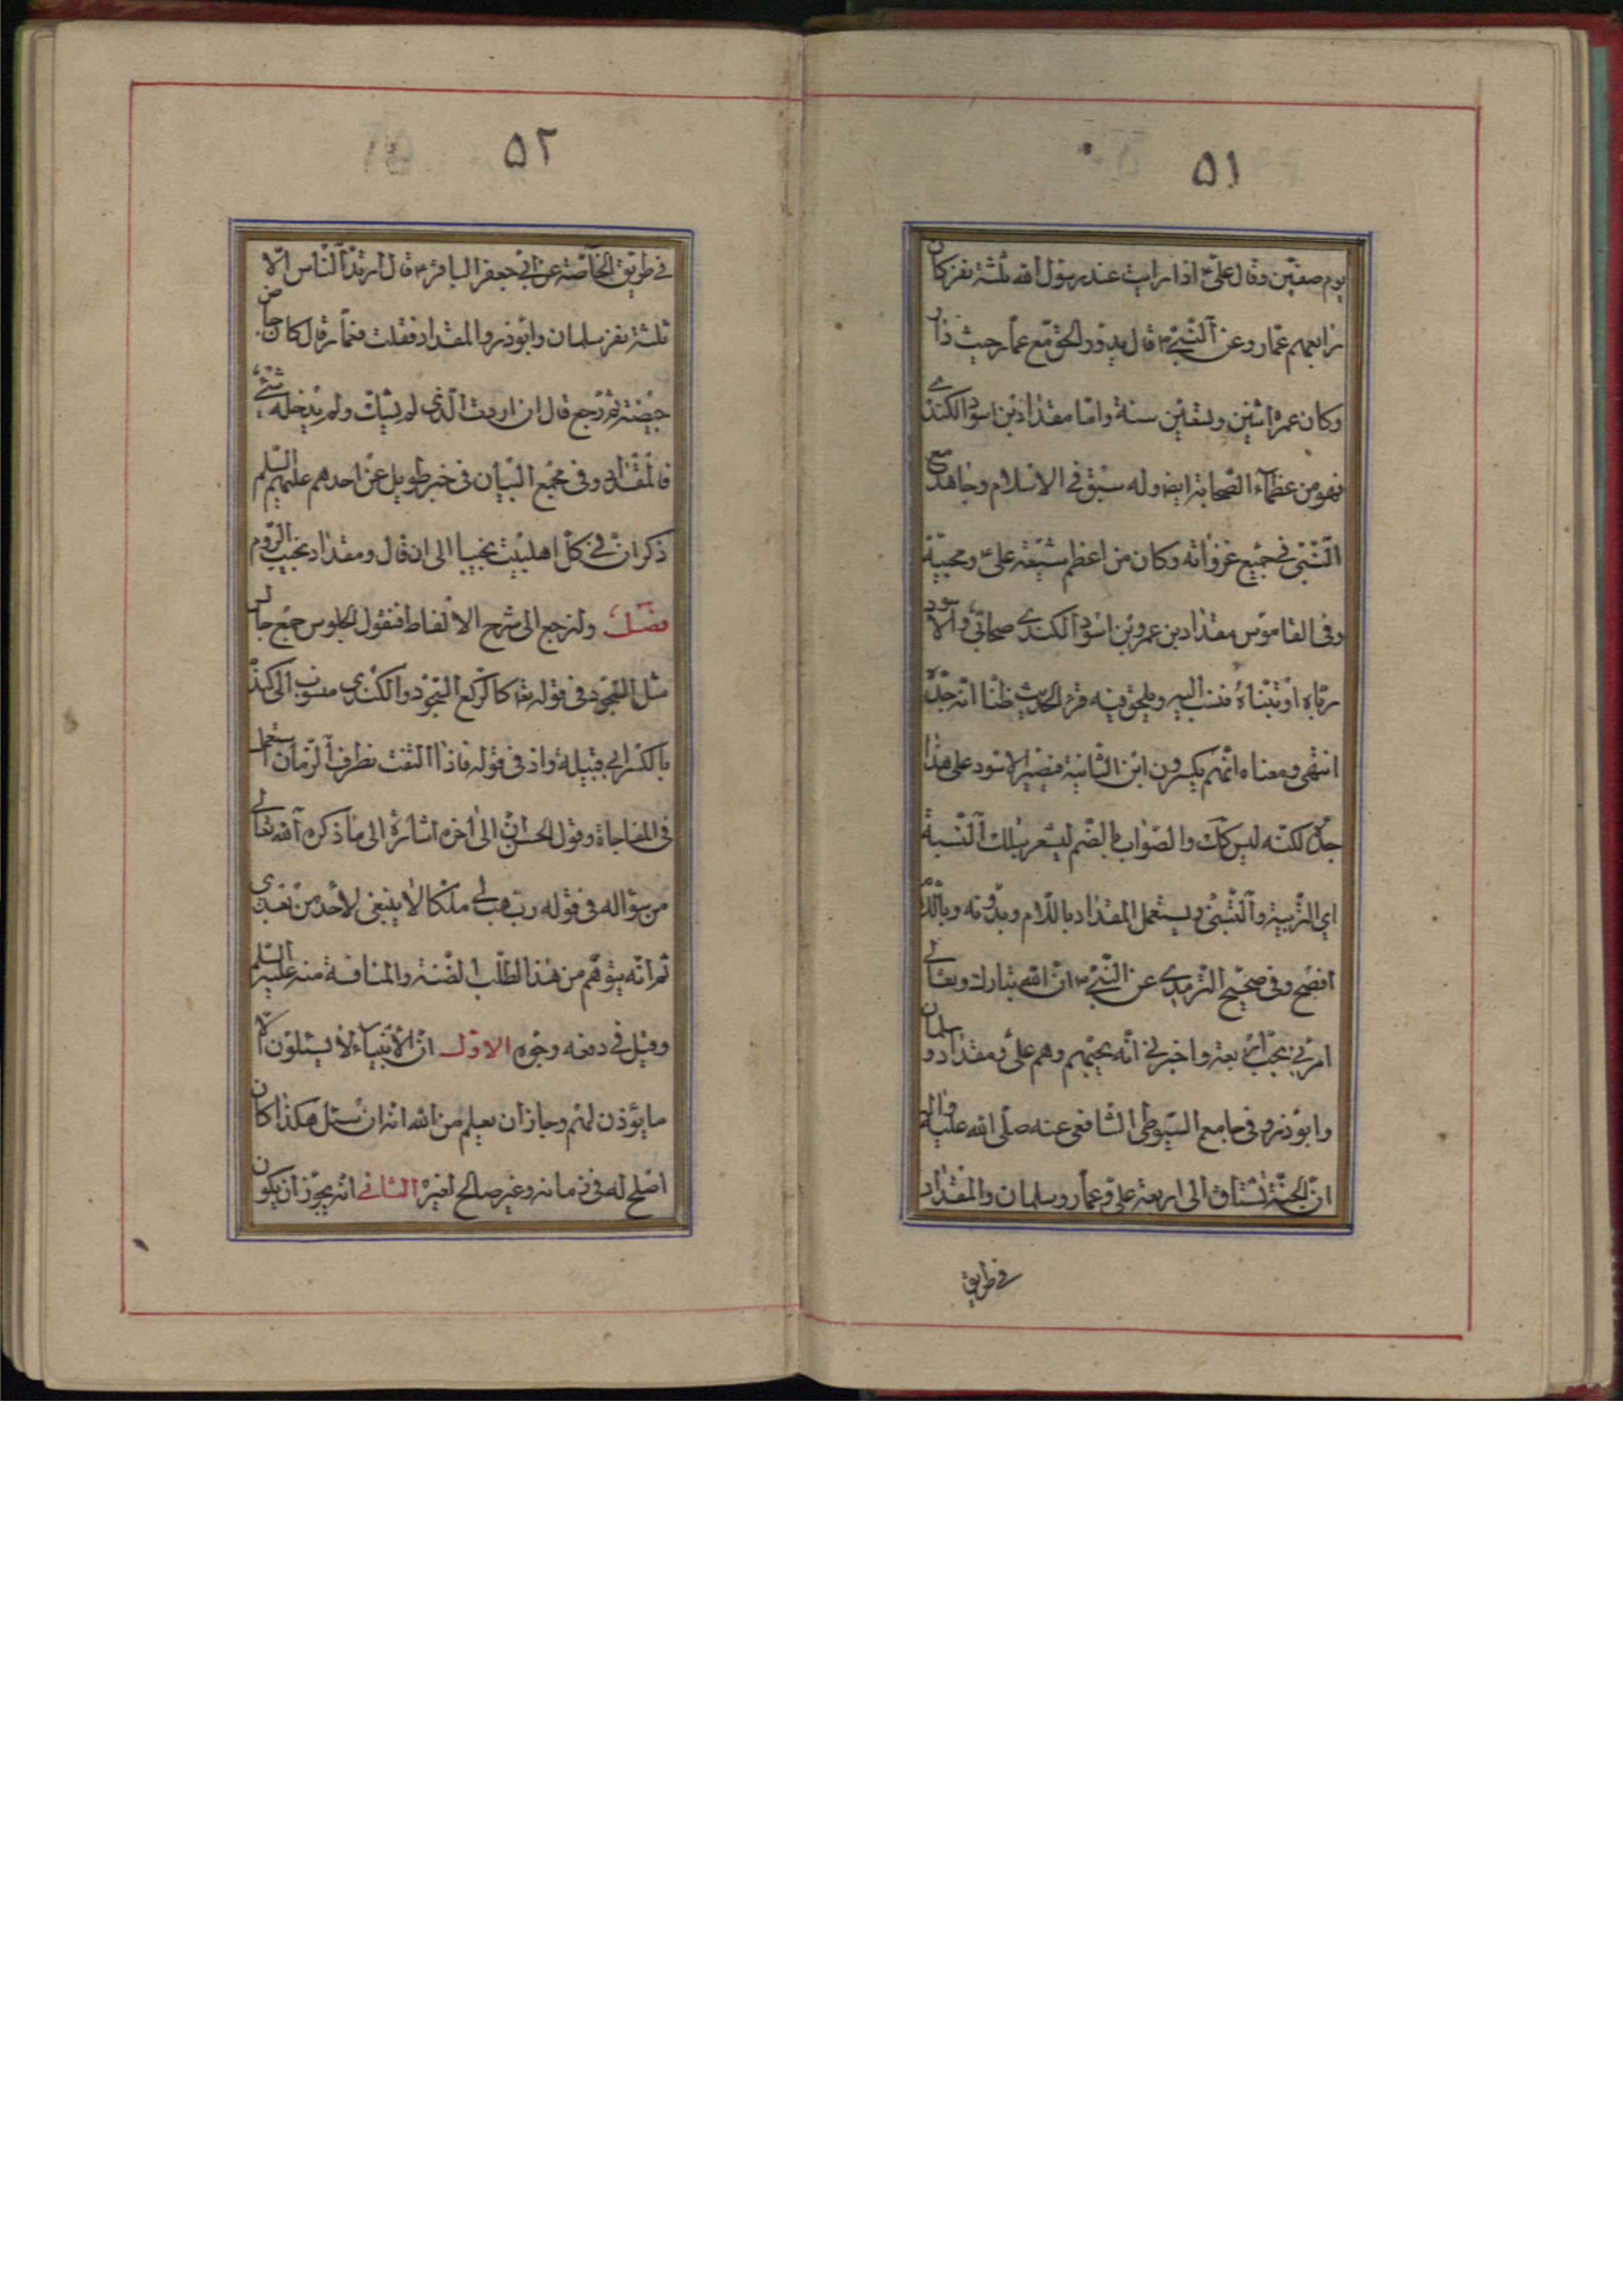 ٥١
يوم صفين وقال علیؑ اذا رايت عند رسول الله ثلثة نفر كان
رابعهم عمار وعن النبیؐ قال يدور الحق مع عمار حيث دار
وكان عمره اثنين وتسعين سنة واما مقداد بن اسود الكندی
فهو من عظمآء الصحابة ايضا وله سبق فی الاسلام وجاهد مع
النبی فی جميع غزواته وكان من اعظم شيعة علیؑ ومحبيه
وفی القاموس مقداد بن عمرو بن اسود الكندی صحابی والاسود
رباه او تبناه فنسب اليه ويلحق فيه قرء الحديث ظنا انه جده
انتهی ومعناه انهم يكسرون ابن الثانية فيصير الاسود علی هذا
جده لكنه ليس كك والصواب بالضم ليشعر بتلك النسبة
ای التربية والتبنی ويستعمل المقداد باللام وبدونه وباللام
افصح وفی صحيح الترمدی عن النبیؐ ان الله تبارك وتعالی
امرنی بحب اربعة واخبرنی انه يحبهم وهم علی ومقداد وسلمان
وابوذر وفی جامع السيوطی الشافعی عنه صلی الله عليه واله
ان الجنة تشتاق الی اربعة علی وعمار وسلمان والمقداد
فی طريق
٥٢
فی طريق الخاصة عن ابی جعفر الباقرؑ قال ارتد الناس الا
ثلثة نفر سلمان وابوذر والمقداد فقلت فعمار قال كان جاض
جيضة ثم رجع قال ان اردت الذی لم يشك ولم يدخله شیء
فالمقداد وفی مجمع البيان فی خبر طويل عن احدهم عليهم السلم
ذكر ان فی كل اهلبيت نجيبا الی ان قال ومقداد نجيب الروم
فصل ولنرجع الی شرح الالفاظ فنقول الجلوس جمع جالس
مثل السجود فی قوله تعا كالركع السجود والكندی منسوب الی كندة
بالكسر ای قبيلة واذ فی قوله فاذا التفت نظرف الزمان استعمل
فی المفاجاة وقول الحسنؑ الی اخره اشارة الی ما ذكره الله تعالی
من سؤاله فی قوله رب هب لی ملكا لا ينبغی لاحد من بعدی
ثم انه يتوهم من هذا الطلب الضنة والمنافسة منه عليه السلم
وقيل فی دفعه وجوه الاول ان الانبياء لا يسئلون الا
ما يؤذن لهم وجاز ان يعلم من الله انه ان سئل هكذا كان
اصلح له فی زمانه وغير صالح لغيره الثانی انه يجوز ان يكون